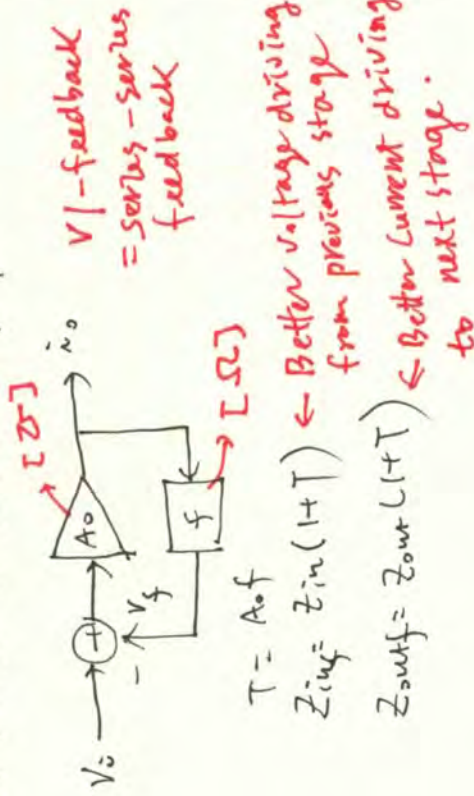 [℧]
A₀
i₀
Vi
+
-
Vf
f
[Ω]
VI-feedback
= series-series
feedback
T = A₀f
Zinf = Zin (1+T) ← Better voltage driving
from previous stage
Zoutf = Zout (1+T) ← Better current driving
to next stage.